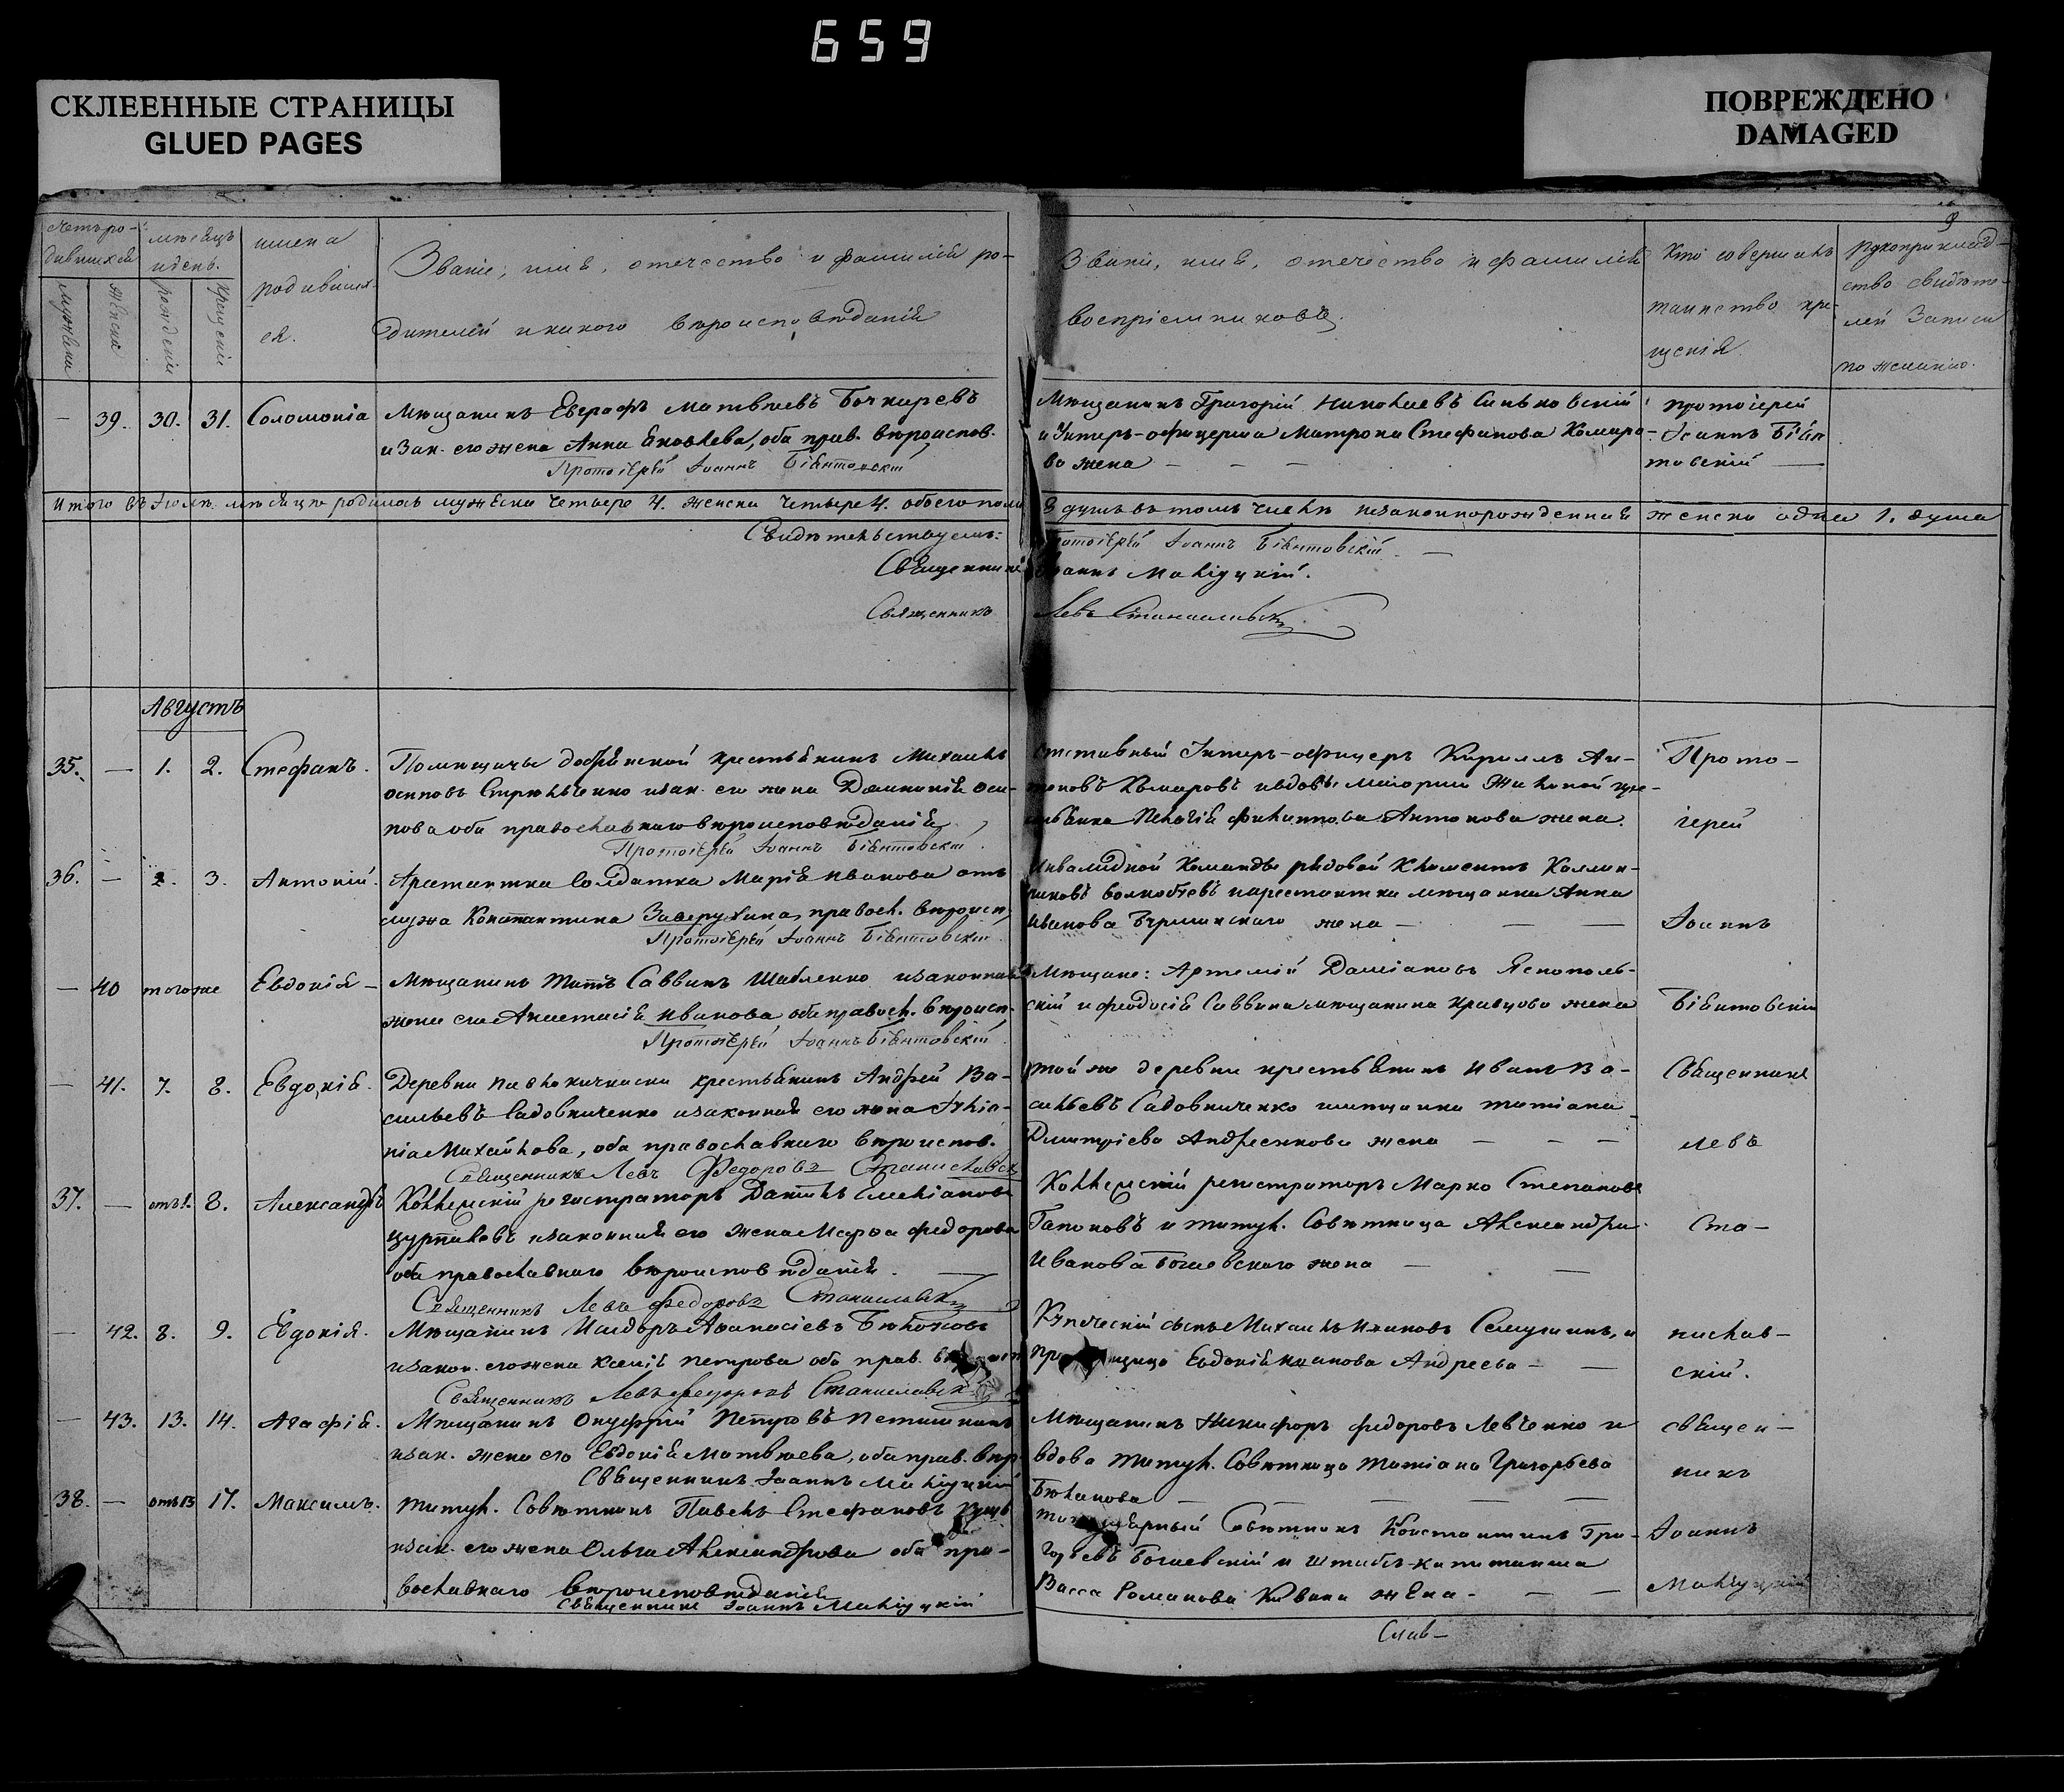 659
СКЛЕЕННЫЕ СТРАНИЦЫ
GLUED PAGES
ПОВРЕЖДЕНО
DAMAGED
9
Четъ ро-
дившихся
мѣсяцъ
и день.
имена
родивших
ся.
мужеска
женска
рожденія
крещенія
Званіе, имя, отечество и фамилія ро-
дителей и какого вѣроисповѣданія
Званіе, имя, отечество и фамилія
воспріемниковъ.
Кто совершалъ
таинство кре-
щенія
рукоприклад-
ство свидѣте-
лей записи
по желанію.
— 39. 30. 31. Соломонія
Мѣщанинъ Евграфъ Матвѣевъ Бочкаревъ
и зак. его жена Анна Яковлева, оба прав. вѣроиспов.
Протоіерей Іоаннъ Біянтовскій
Мѣщанинъ Григорій Николаевъ Синьковскій
и Унтеръ-офицерша Матрона Стефанова Комаро-
ва жена — — —
протоіерей
Іоаннъ Біян
товскій —
Итого въ Іюлѣ мѣсяцѣ родилось мужеска четверо 4. женска четыре 4. обоего пола
8 душъ въ томъ числѣ незаконнорожденная женска одна 1. душа
Свидѣтельствуемъ:
Протоіерей Іоаннъ Біянтовскій —
Священникъ Іоаннъ Малiуцкій.
Священникъ Левъ Станиславскій
Августъ
35. — 1. 2. Стефанъ.
Помѣщичьи крестьянинъ Михаилъ
Осиповъ и зак. его жена Домникія Оси-
пова оба православнаго вѣроисповѣданія
Протоіерей Іоаннъ Біянтовскій.
Отставный Унтеръ-офицеръ Кириллъ Ан-
тоновъ Комаровъ и вдовы маіорши кре-
стьянка Пелагія Филиппова Антонова жена.
Прото-
іерей
36. — 2. 3. Антоній.
Арестантка Солдатка Марія Иванова отъ
мужа Константина Заверухина, правосл. вѣроисп.
Протоіерей Іоаннъ Біянтовскій
Инвалидной команды рядовой Климентъ
и арестантка мѣщанка Анна
Иванова жена — — —
Іоаннъ
— 40 того же Евдокія —
Мѣщанинъ Титъ Саввинъ Шабленко и законная
жена его Анастасія Иванова оба правосл. вѣроисп.
Протоіерей Іоаннъ Біянтовскій
Мѣщане: Артемій Даміановъ Яснополь-
скій и Феодосія Саввина мѣщанина Кравцова жена
Біянтовскій
— 41. 7. 8. Евдокія.
Деревни Павлокичкаски крестьянинъ Андрей Ва-
сильевъ Садовниченко и законная его жена Іулiа-
нiа Михайлова, оба православнаго вѣроиспов.
Священникъ Левъ Федоровъ Станиславск
той же деревни крестьянинъ Иванъ Ва-
сильевъ Садовниченко и мѣщанка Татіана
Димитріева Андреенкова жена — — —
Священникъ
Левъ
37. — отъ 1. 8. Александръ
Коллежскій регистраторъ Даніилъ Емеліановъ
и законная его жена Марфа Федорова
оба православнаго вѣроисповѣданія. —
Священникъ Левъ Федоровъ Станиславскій
Коллежскій регистраторъ Марко Степановъ
Гапоновъ и титул. Совѣтница Александра
Иванова Богаевскаго жена — —
Ста-
— 42. 8. 9. Евдокія.
Мѣщанинъ Исидоръ Аѳанасіевъ
и закон. его жена Ксенія Петрова оба прав.
Священникъ Левъ Федоровъ Станиславск
Купеческій сынъ Михаилъ Ивановъ и
Евдокія Иванова Андреева — —
нислав-
скій.
— 43. 13. 14. Агафія.
Мѣщанинъ Онуфрій Петровъ
и зак. жена его Евдокія Матвѣева, оба прав. вѣр
Священникъ Іоаннъ Малiуцкій
Мѣщанинъ Никифоръ Федоровъ Левченко и
вдова Титул. Совѣтница Татіана Григорьева
Бюканова — — — — —
священ-
никъ
38. — отъ 13 17. Максимъ.
Титул. Совѣтникъ Павелъ Стефановъ
и зак. его жена Ольга Александрова оба пра-
вославнаго вѣроисповѣданія
Священникъ Іоаннъ Малiуцкій
Титулярный Совѣтникъ Константинъ Гри-
горьевъ Богаевскій и Штабъ-капитанша
Васса Романова жена — — —
Іоаннъ
Малiуцкій
Слав-